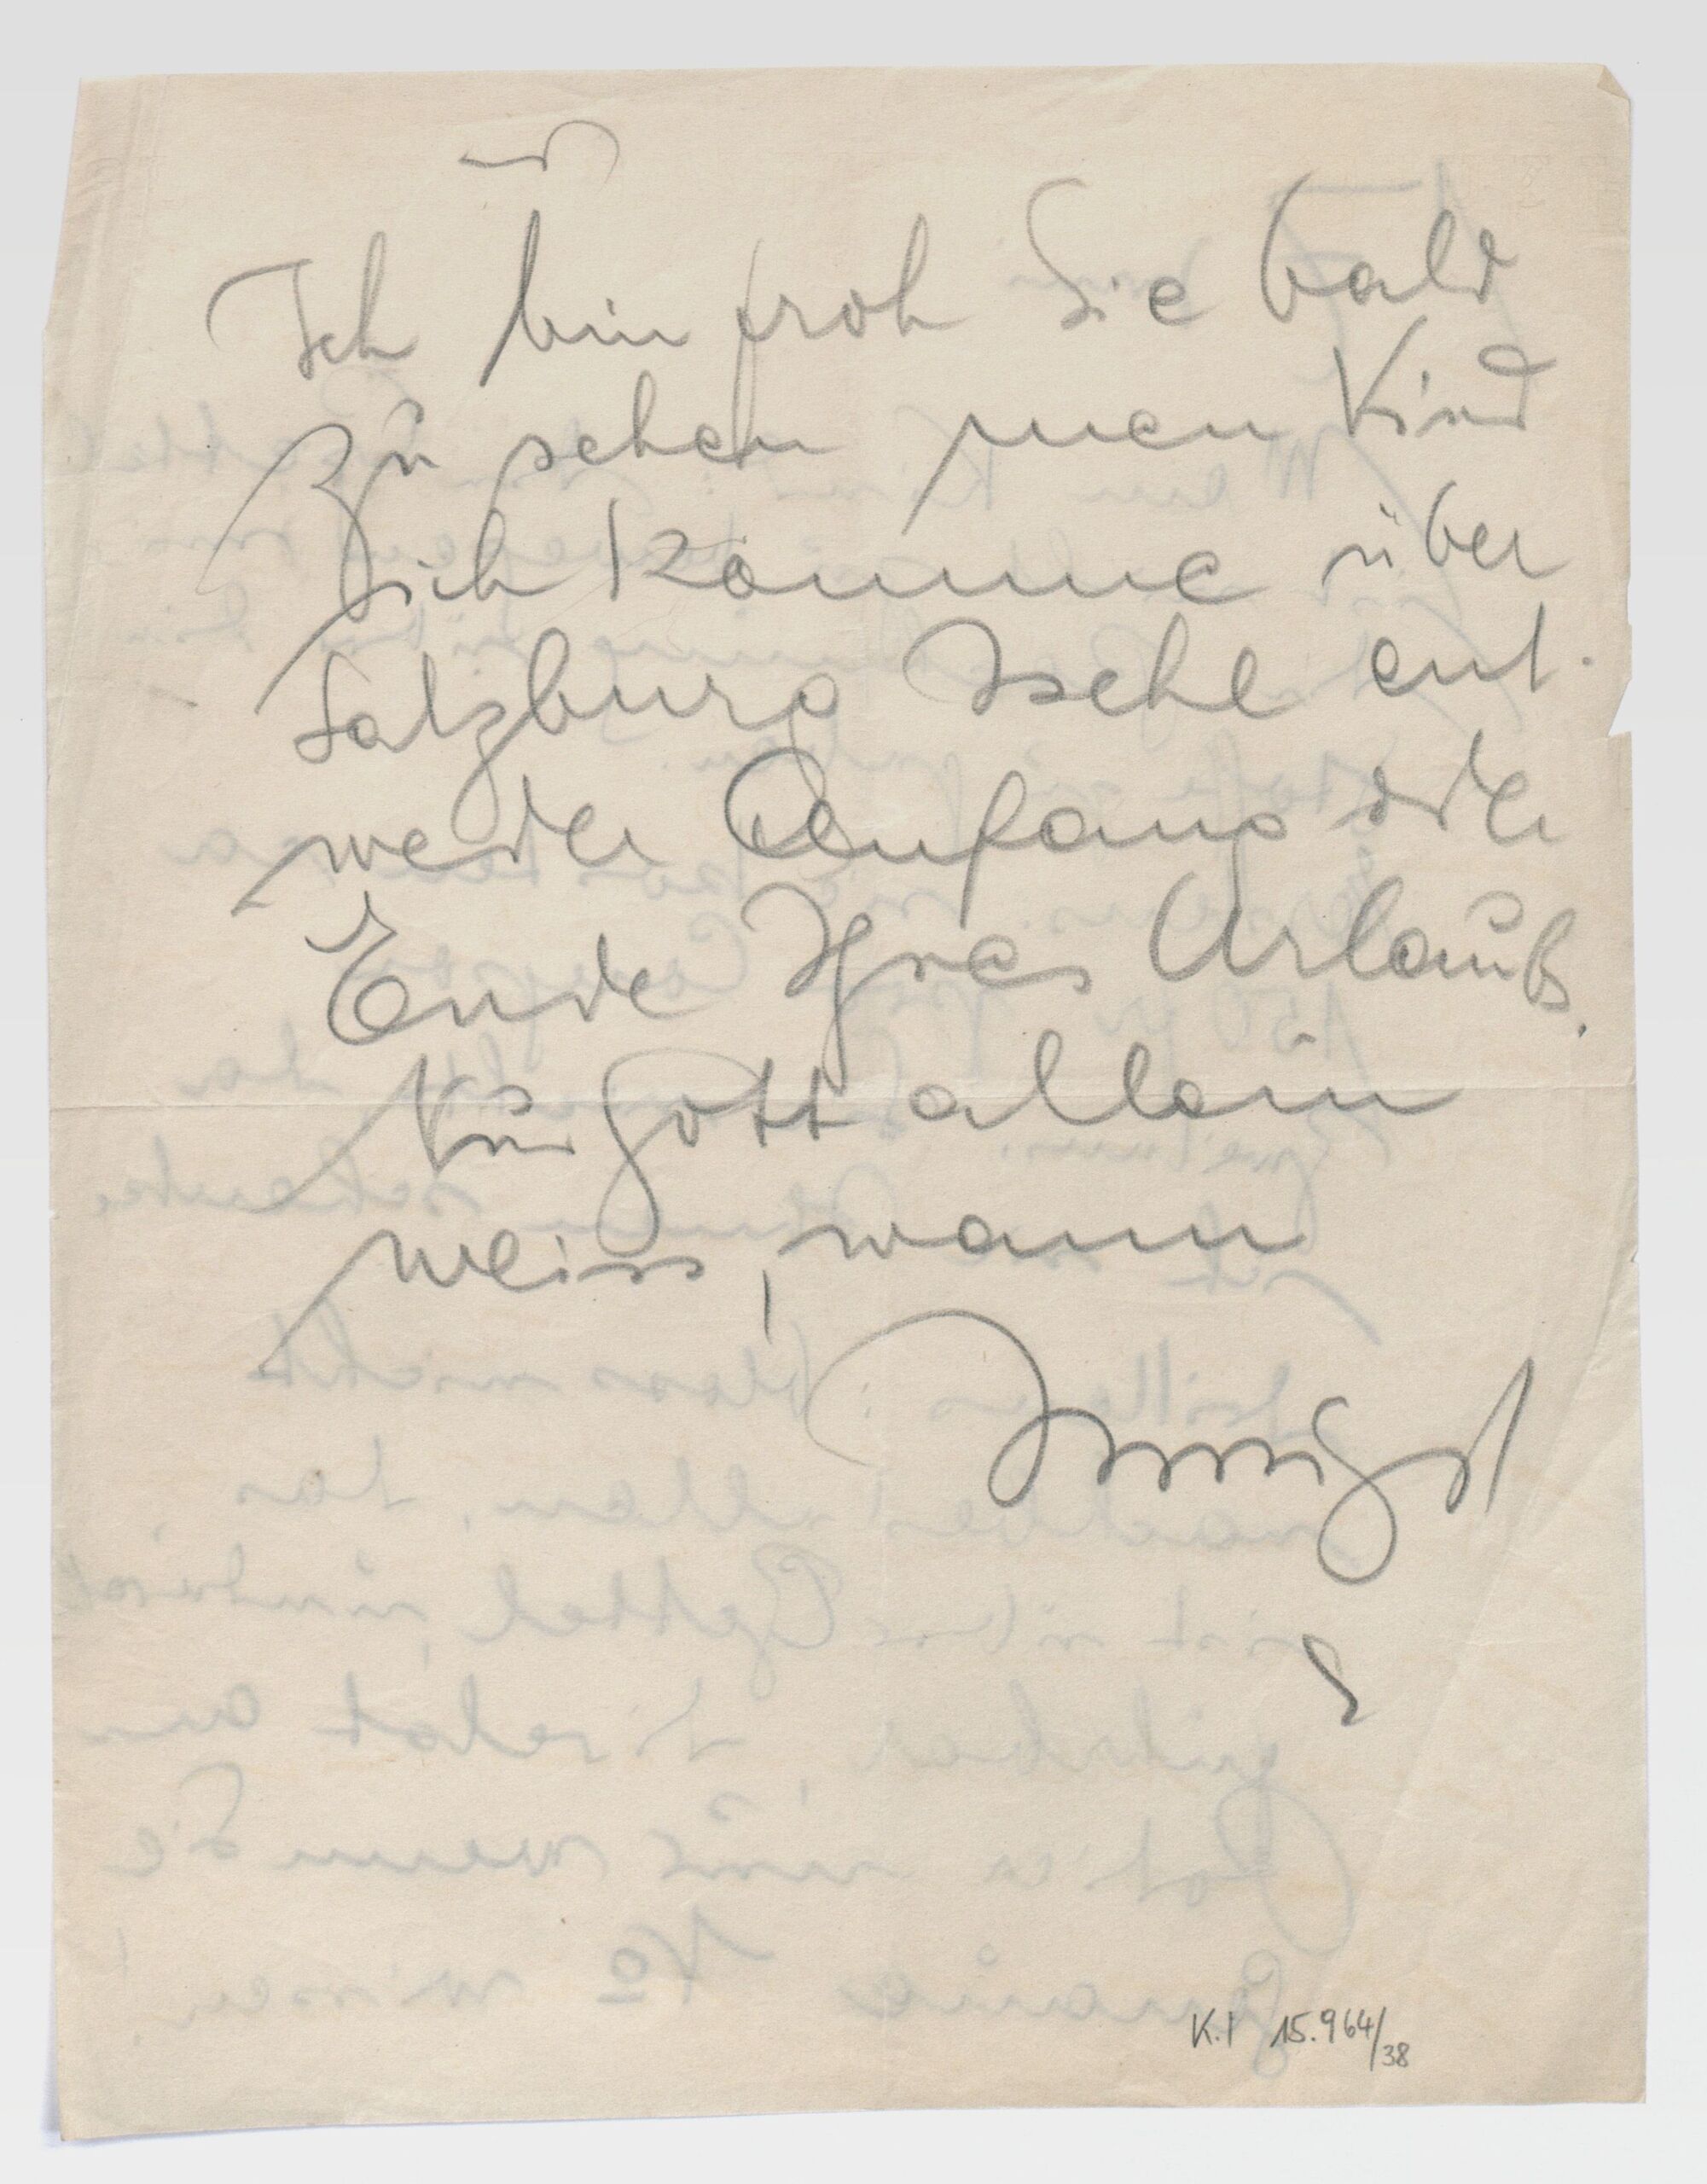 Ich bin froh Sie bald
zu sehen mein Kind
ich komme über
Salzburg Ischl ent-
weder Anfang oder
Ende Ihres Urlaubs.
Nur Gott allein
weiss, wann
Innigst
K.I 15.964/38